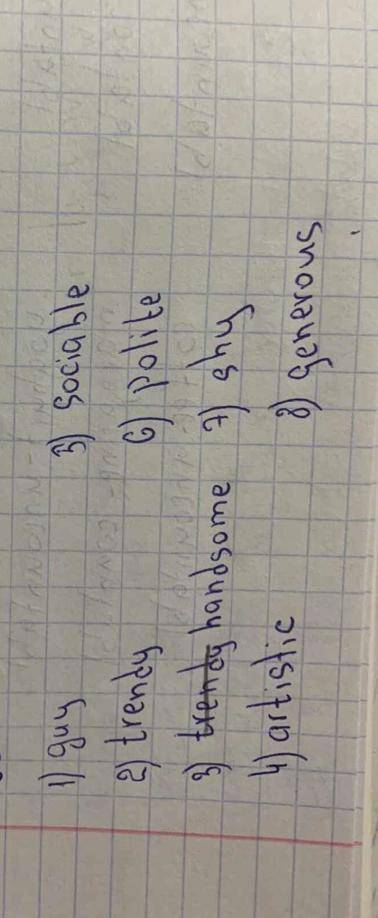 1) guy
2) trendy
3) trendy handsome
4) artistic
5) sociable
6) polite
7) shy
8) generous